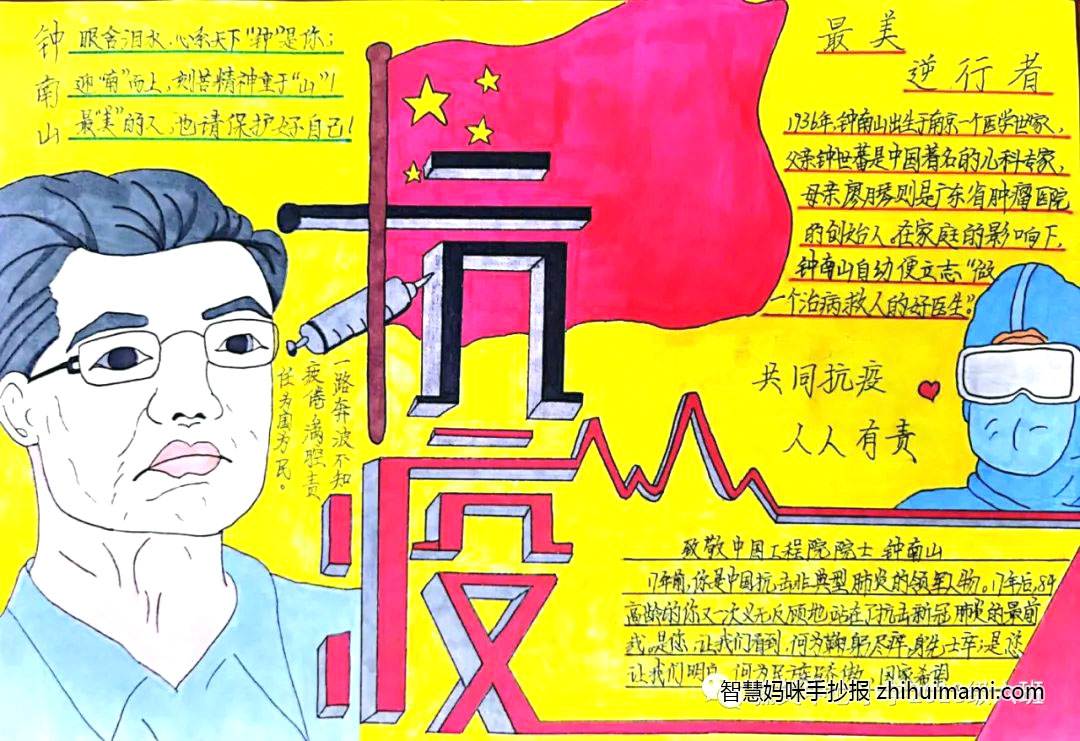 钟南山
眼含泪水，心系天下“钟”是你；
迎“南”而上，刻苦精神重于“山”！
最“美”的人，也请保护好自己！
抗疫
一路奔波不知
疲倦满腔责
任为国为民。
最美
逆行者
1936年，钟南山出生于南京一个医学世家，
父亲钟世蕃是中国著名的儿科专家，
母亲廖月琴则是广东省肿瘤医院
的创始人。在家庭的影响下，
钟南山自幼便立志“做
一个治病救人的好医生”。
共同抗疫
人人有责
致敬中国工程院院士 钟南山
17年前，你是中国抗击非典型肺炎的领军人物。17年后，84
高龄的你又一次义无反顾地站在了抗击新冠肺炎的最前
线。是你，让我们看到，何为鞠躬尽瘁，身先士卒；是您
让我们明白，何为民族骄傲，国家希望
智慧妈咪手抄报 zhihuimami.com